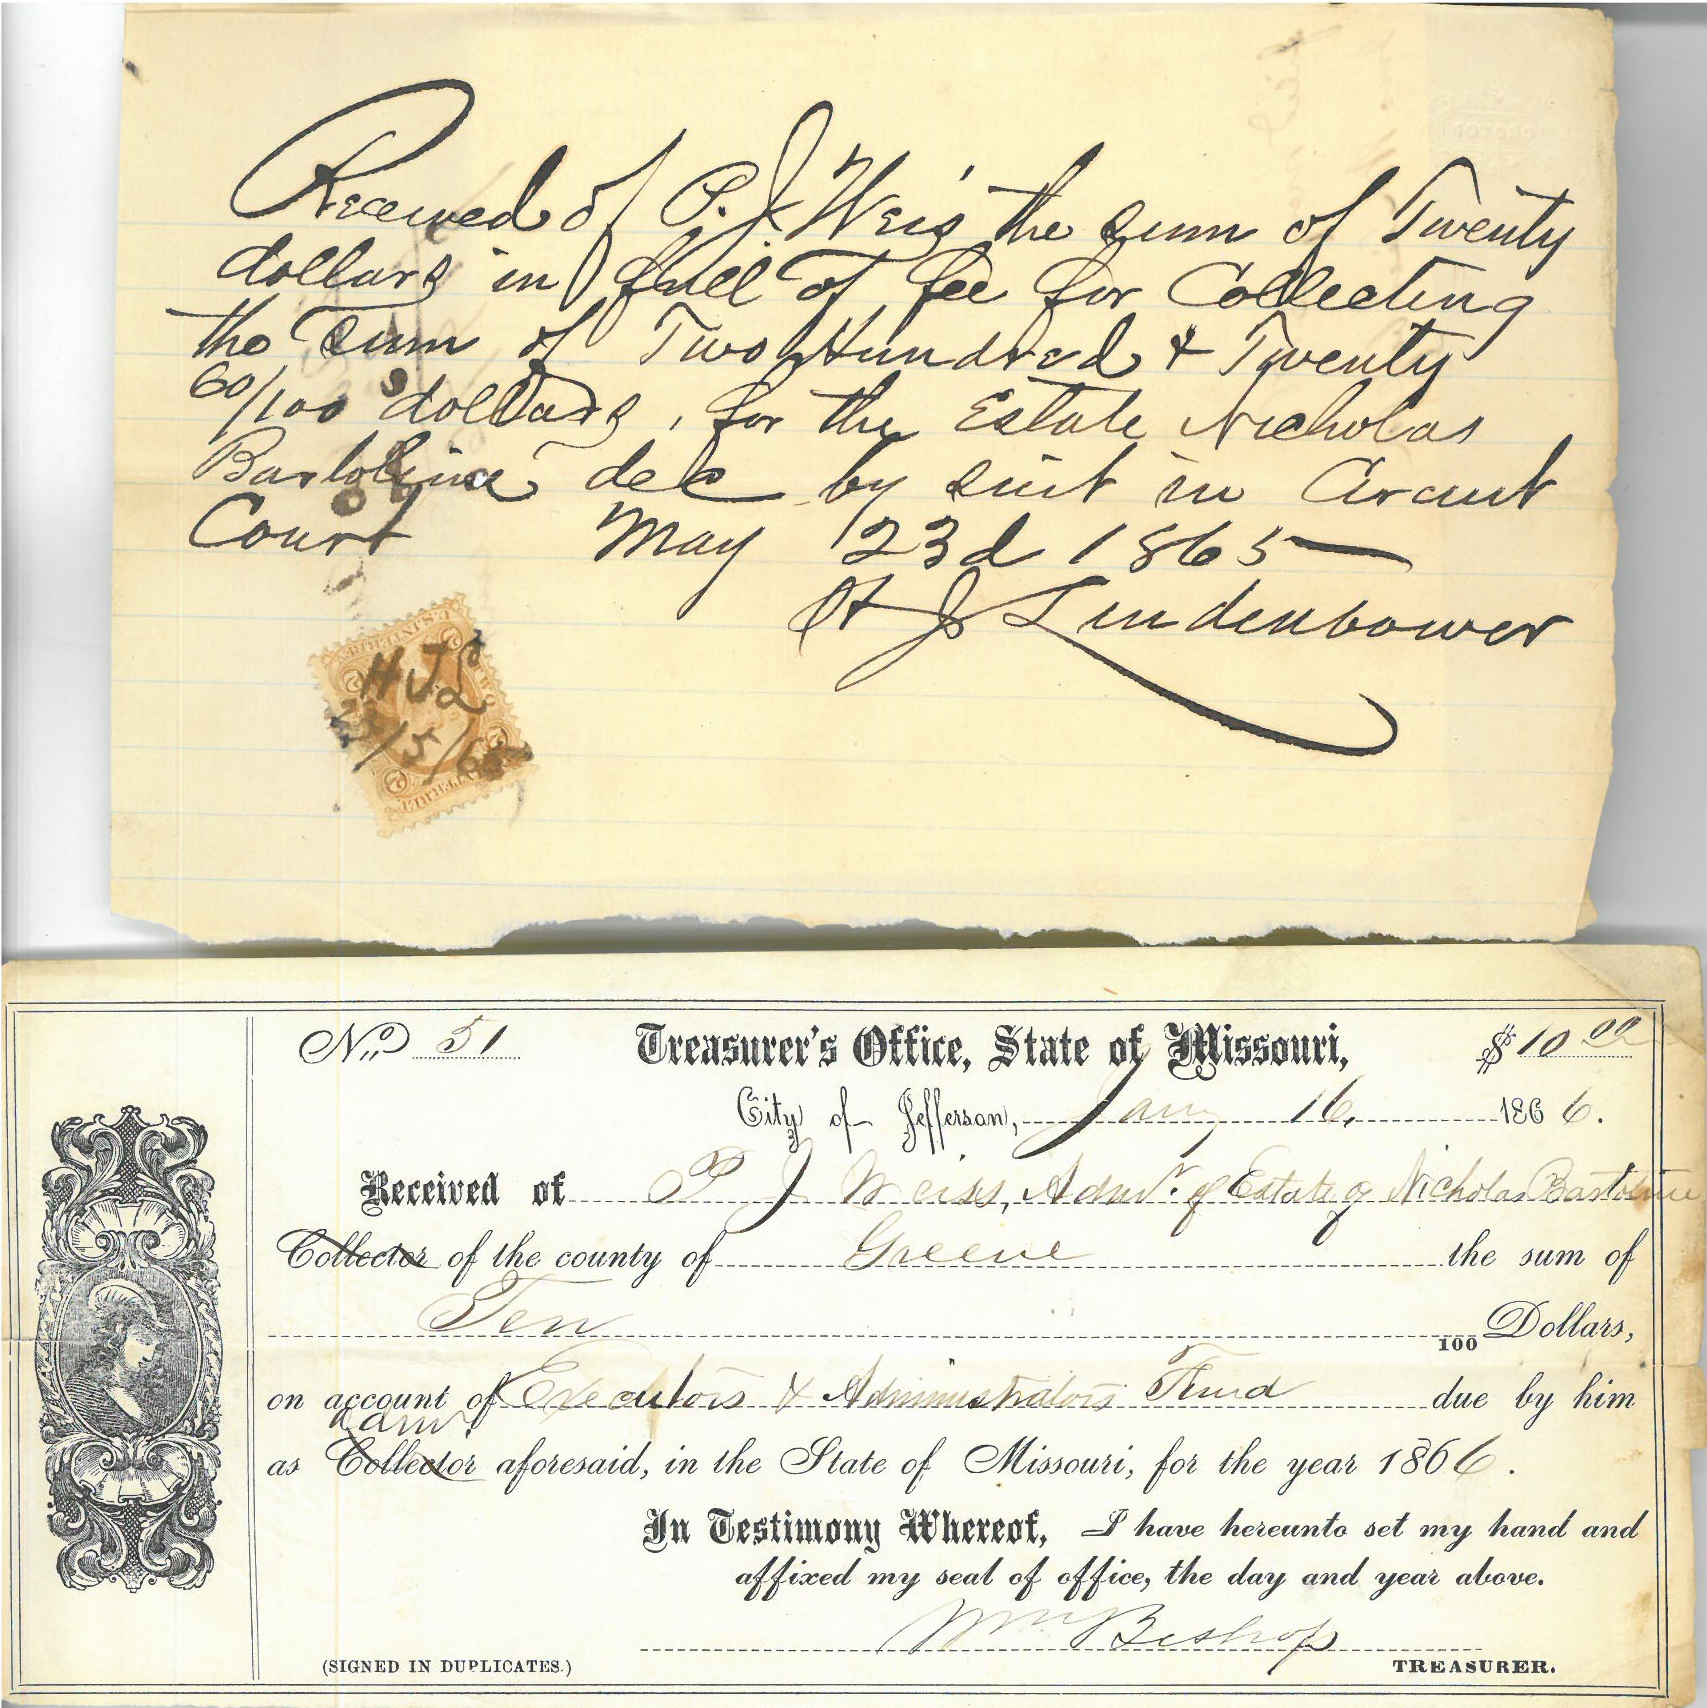 Received of P. J. Weis the sum of Twenty
dollars in full of fee for Collecting
the Sum of Two Hundred & Twenty
60/100 dollars, for the Estate Nicholas
Bartoline dec by suit in Circuit
Court May 23d 1865
H J Lindenbower
U.S. INTER. REV.
H J L
23/5/65
No. 51 Treasurer's Office, State of Missouri, $10 00
City of Jefferson, Jany 16, 1866.
Received of P J Weiss, Admr. of Estate of Nicholas Bartoline
Collector of the county of Greene the sum of
Ten 100 Dollars,
on account of Executors & Administrators Fund due by him
admr.
as Collector aforesaid, in the State of Missouri, for the year 1866.
In Testimony Whereof, I have hereunto set my hand and
affixed my seal of office, the day and year above.
Wm Bishop
(SIGNED IN DUPLICATES.) TREASURER.